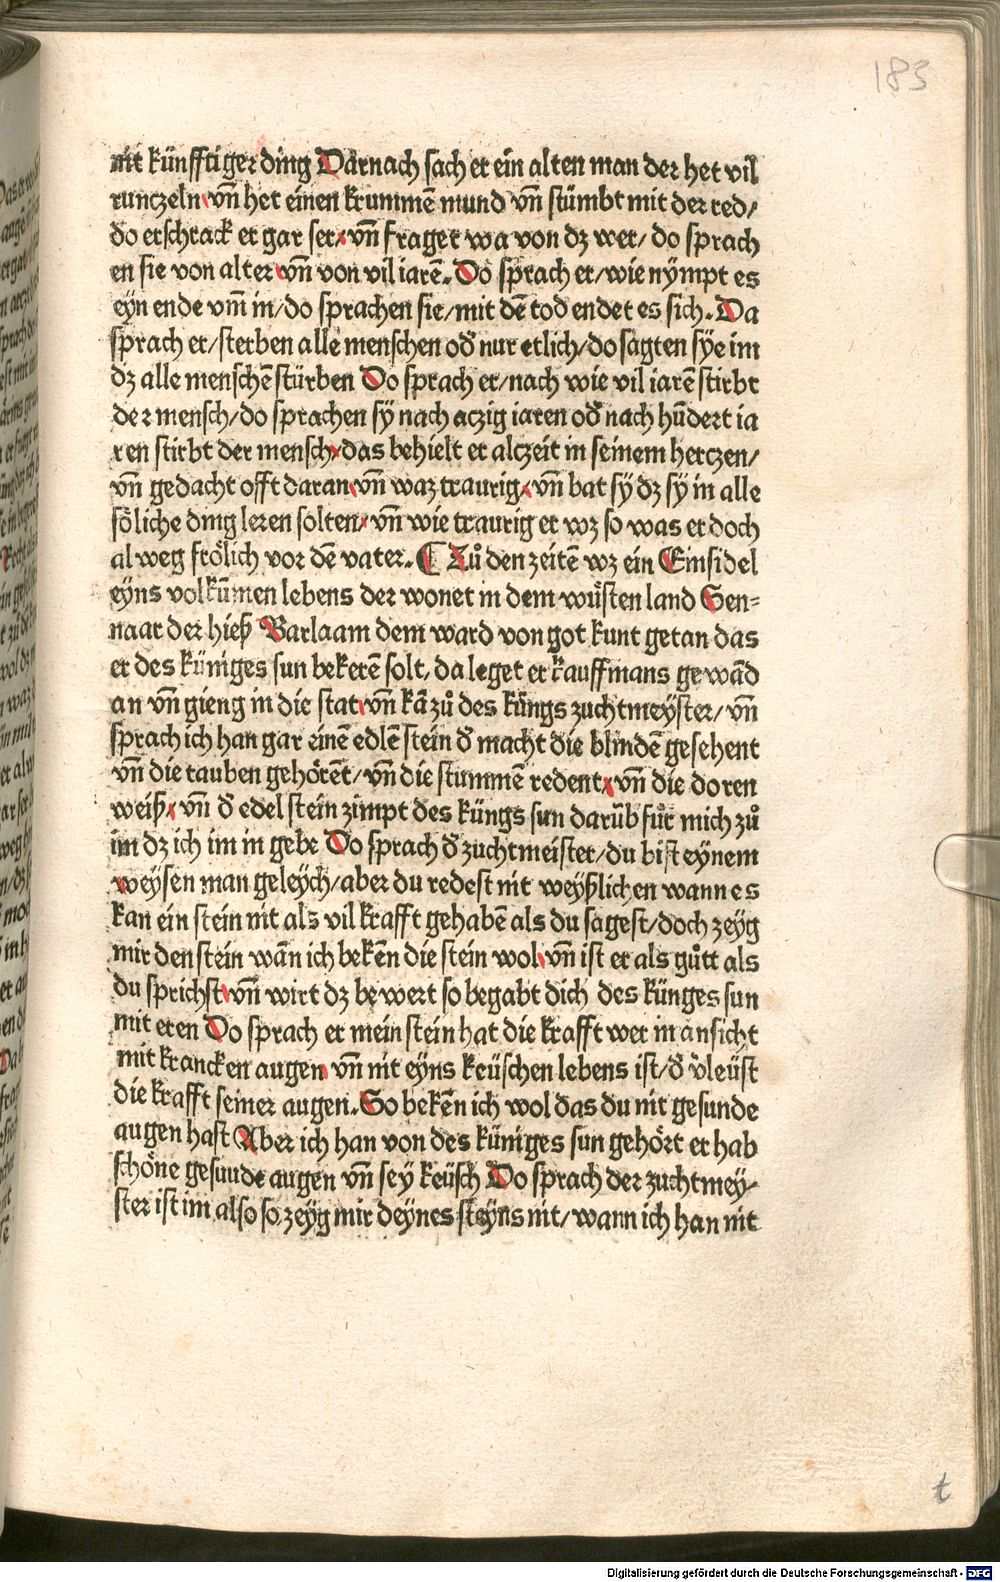 183
nit künfftiger ding Darnach sach er ein alten man der het vil
runczeln vn̄ het einen krummē mund vn̄ stümbt mit der red/
do erschrack er gar ser vn̄ fraget wa von dz wer/ do sprach
en sie von alter vn̄ von vil iarē. Do sprach er/ wie nympt es
eyn ende vm̄ in/ do sprachen sie/ mit dē tod endet es sich. Da
sprach er/ sterben alle menschen od̓ nur etlich/ do sagten sÿe im
dz alle menschē stürben Do sprach er/ nach wie vil iarē stirbt
der mensch/ do sprachen sÿ nach aczig iaren od̓ nach hūdert ia
ren stirbt der mensch das behielt er alczeit in seinem herczen/
vn̄ gedacht offt daran vn̄ waz traurig vn̄ bat sÿ dz sÿ in alle
soͤliche ding leren solten vn̄ wie traurig er wz so was er doch
al weg froͤlich vor dē vater. ¶ Zuͦ den zeitē wz ein Einsidel
eÿns volkūmen lebens der wonet in dem wuͤsten land Sen⸗
naar der hieß Barlaam dem ward von got kunt getan das
er des küniges sun bekerē solt, da leget er kauffmans gewād
an vn̄ gieng in die stat vn̄ kā zuͦ des küngs zuchtmeÿster/ vn̄
sprach ich han gar einē edlē stein d̓ macht die blindē gesehent
vn̄ die tauben gehoͤrēt/ vn̄ die stummē redent vn̄ die doren
weiß vn̄ d̓ edel stein zimpt des küngs sun darūb fuͤr mich zuͦ
im dz ich im in gebe Do sprach d̓ zuchtmeister/ du bist eÿnem
weÿsen man geleÿch/ aber du redest nit weÿßlichen wann es
kan ein stein nit als vil krafft gehabē als du sagest/ doch zeÿg
mir den stein wān ich bekēn die stein wol vn̄ ist er als guͦtt als
du sprichst vn̄ wirt dz bewert so begabt dich des künges sun
mit eren Do sprach er mein stein hat die krafft wer in ansicht
mit krancken augen vn̄ nit eÿns keüschen lebens ist/ d̓ v̓leüst
die krafft seiner augen. So bekēn ich wol das du nit gesunde
augen hast Aber ich han von des küniges sun gehoͤrt er hab
schoͤne gesunde augen vn̄ sey keüsch Do sprach der zuchtmey⸗
ster ist im also so zeÿg mir deÿnes steÿns nit/ wann ich han nit
t
Digitalisierung gefördert durch die Deutsche Forschungsgemeinschaft - DFG